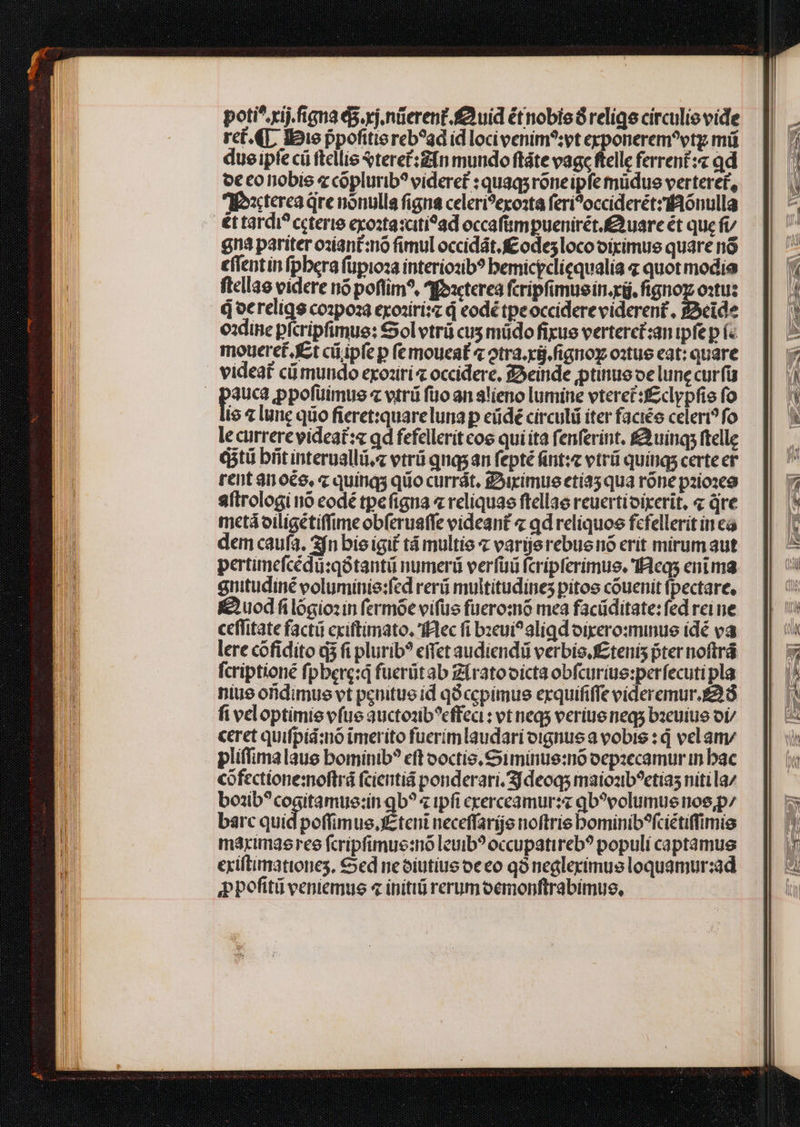 potiꝰ.xij.signa ꝙ̄.xj.nūerent̄.Quid ēt nobis d̄ reliq̄s circulis vide
ret̄.¶ His p̄positis rebꝰad id loci venimꝰ:vt exponeremꝰvtꝝ mū
dus ipse cū stellis v̓teret̄:An mundo stāte vage stelle ferrent̄:⁊ qd
de eo nobis ⁊ cōpluribꝰ videret̄ :quaqꝫ rōne ipse mūdus verteret̄,
Preterea q̄re nōnulla signa celeriꝰexorta seriꝰocciderēt:Nōnulla
ēt tardiꝰ ceteris exorta:citiꝰad occasūm puenirēt.Quare ēt que si/
gna pariter oriant̄:nō simul occidāt.Eodeꝫ loco diximus quare nō
essent in sphera supiora interioribꝰ hemicycli equalia ⁊ quot modis
stellas videre nō possimꝰ, Preterea scripsimus in.xij. signoꝝ ortu:
q̄ de reliq̄s corpora exoriri:⁊ q̄ eodē tpe occidere viderent̄ . Deide
ordine p̄scripsimus: Sol vtrū cuꝫ mūdo fixus verteret̄:an ipse p se
moueret̄.Et cū ipse p se moueat̄ ⁊ ɔtra.xij.signoꝝ ortus eat: quare
videat̄ cū mundo exoriri ⁊ occidere. Deinde ꝓtinus de lune cursu
pauca ꝓposuimus ⁊ vtrū suo an alieno lumine vteret̄:Eclypsis so
lis ⁊ lune q̄uo fieret:quare luna p eūdē circulū iter faciēs celeriꝰ so
le currere videat̄:⁊ qd fefellerit eos qui ita senserint. Quinqꝫ stelle
q̄ꝫtū hn̄t interuallū.⁊ vtrū qnqꝫ an septē sint:⁊ vtrū quinqꝫ certe er
rent an oēs. ⁊ quinqꝫ q̄uo currāt. Diximus etiaꝫ qua rōne priores
astrologi nō eodē tpe signa ⁊ reliquas stellas reuerti dixerit. ⁊ q̄re
metā diligētissime obseruasse videant̄ ⁊ qd reliquos fefellerit in ea
dem causa. In his igit̄ tā multis ⁊ varijs rebus nō erit mirum aut
pertimescēdū:qd̄ tantū numerū versuū scripserimus. Necqꝫ enim a
gnitudinē voluminis:sed rerū multitudineꝫ pitos cōuenit spectare.
Quod si lōgior in sermōe visus fuero:nō mea facūditate: sed rei ne
cessitate factū existimato. Nec si breuiꝰaliqd dixero:minus idē va
lere cōfidito q̄ꝫ si pluribꝰ esset audiendū verbis.Eteniꝫ p̄ter nostrā
scriptionē sphere:q̄ fuerūt ab Arato dicta obscurius:persecuti pla
nius on̄dimus vt penitus id qd̄ cepimus exquisisse videremur.Qd̄
si vel optimis vsus auctoribꝰeffeci : vt neqꝫ verius neqꝫ breuius di/
ceret quispiā:nō īmerito fuerim laudari dignus a vobis : q̄ vel am/
plissima laus hominibꝰ est doctis.Si minus:nō deprecamur in hac
cōfectione:nostrā scientiā ponderari.Ideoqꝫ maioribꝰetiaꝫ niti la/
boribꝰ cogitamus:in qbꝰ ⁊ ipsi exerceamur:⁊ qbꝰvolumus nos,p/
barc quid possimus,Eteni necessarijs nostris hominibꝰsciētissimis
maximas res scripsimus:nō leuibꝰ occupati rebꝰ populi captamus
existimationeꝫ. Sed ne diutius de eo qd̄ negleximus loquamur:ad
ꝓpositū veniemus ⁊ initiū rerum demonstrabimus,